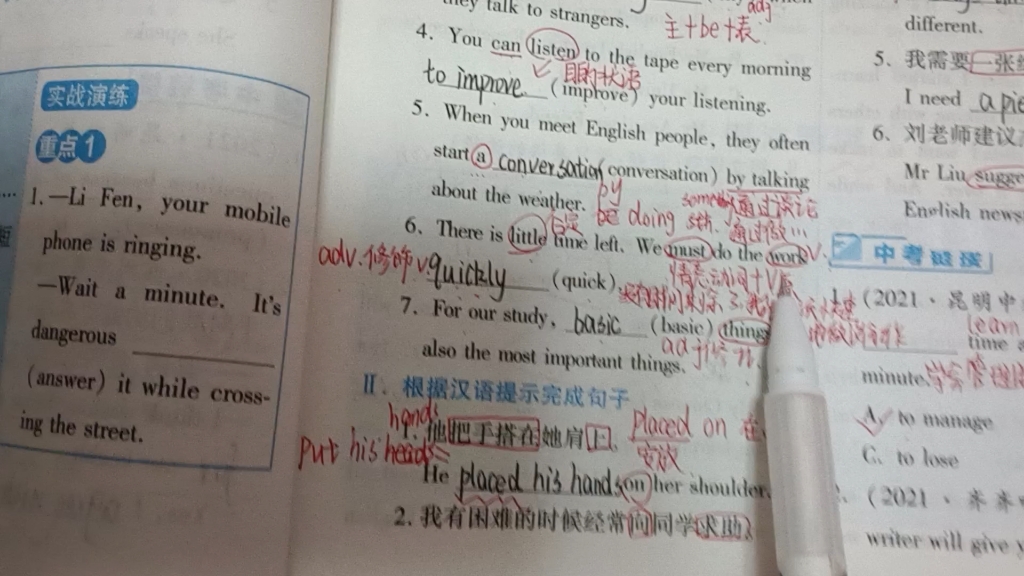 实战演练
重点1
1. —Li Fen, your mobile
phone is ringing.
—Wait a minute. It's
dangerous
(answer) it while cross-
ing the street.
they talk to strangers.
adj
主+be+表
4. You can listen to the tape every morning
目的状语
to improve (improve) your listening.
5. When you meet English people, they often
start a conversation (conversation) by talking
about the weather.
by
be doing sth. 通过做…
通过谈论
6. There is little time left. We must do the work
adv.修饰v.
quickly (quick).
情态动词+V原
7. For our study, basic (basic) things
adj修饰n.
also the most important things.
Ⅱ. 根据汉语提示完成句子
hands
1. 他把手搭在她肩上。
placed on 在
安放
put his heads
He placed his hands on her shoulder.
2. 我有困难的时候经常向同学求助。
different.
5. 我需要一张纸
I need a pie
6. 刘老师建议
Mr Liu sugge
English news
中考链接
1. (2021·昆明中
learn
time
minute.
学会管理
A. to manage
C. to lose
2. (2021·
writer will give y